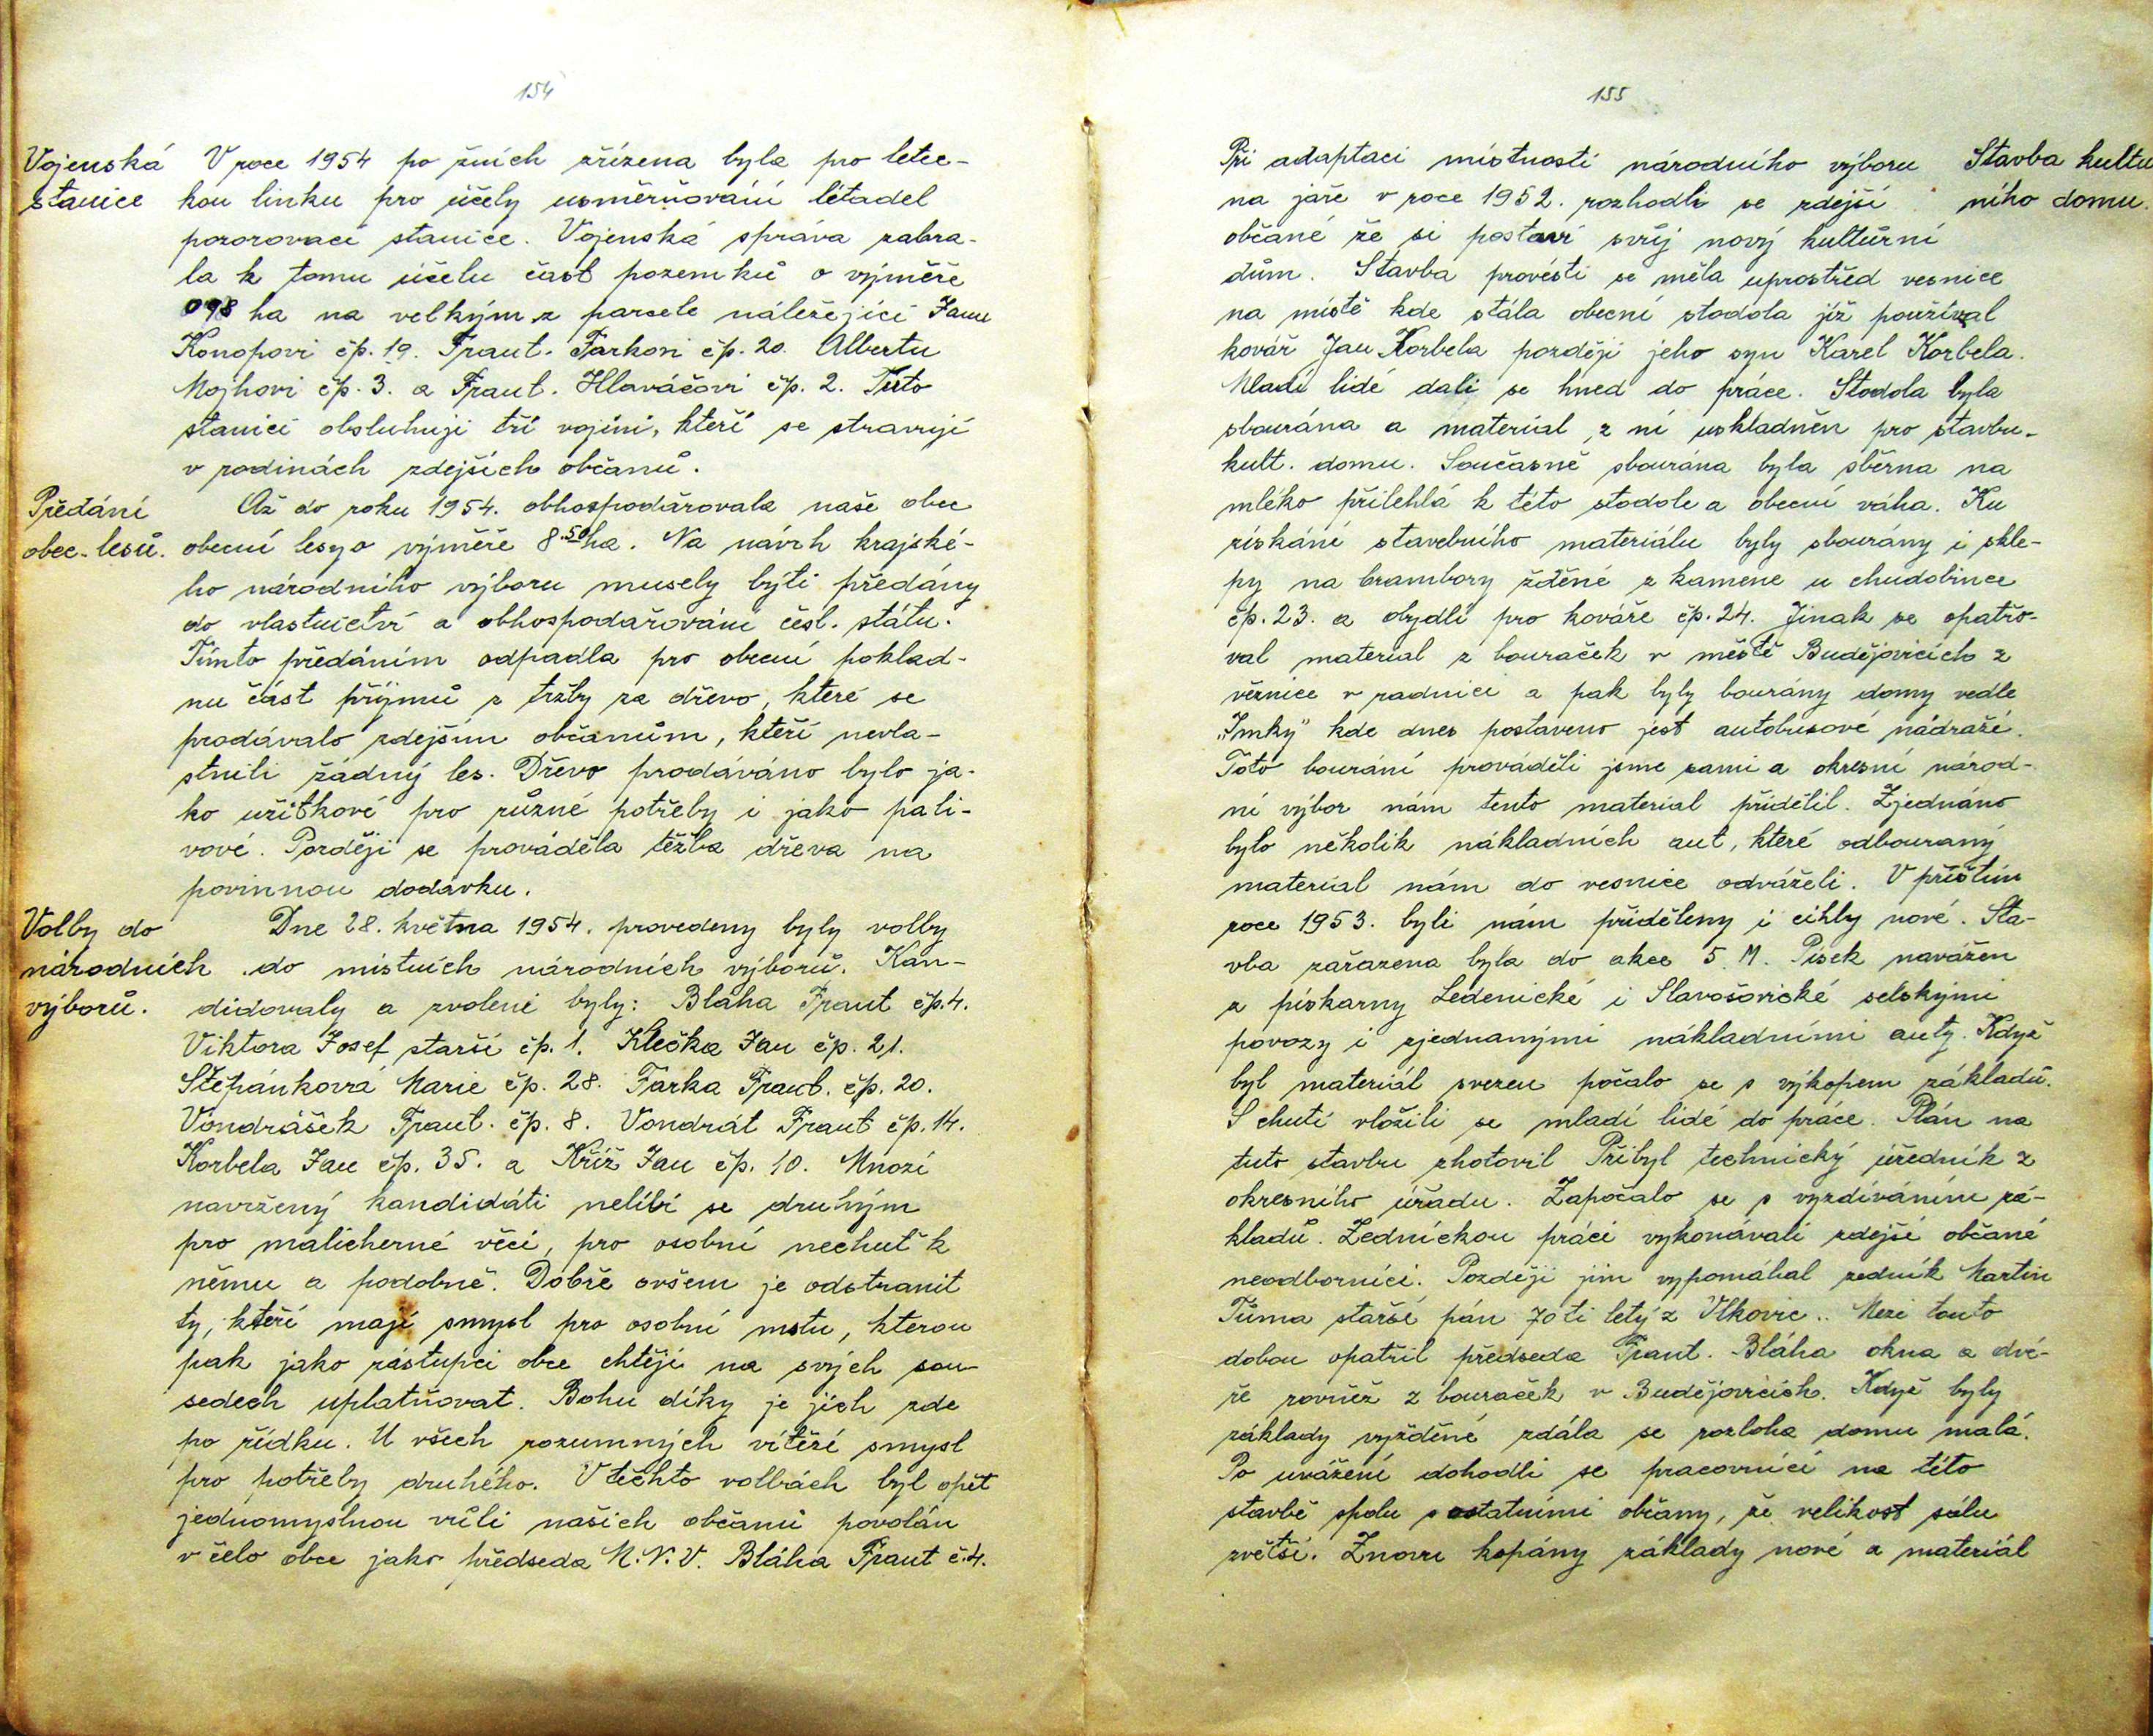 154
Vojenská
stanice
V roce 1954 po žních zřízena byla pro letec-
kou linku pro účely usměrňování létadel
pozorovací stanice. Vojenská správa zabra-
la k tomu účelu část pozemků o výměře
098 ha na velkým z parcele náležející Janu
Konopovi čp. 19. Frant. Farkovi čp. 20. Albertu
Mojhovi čp. 3. a Frant. Hlaváčovi čp. 2. Tuto
stanici obsluhují tři vojíni, kteří se stravují
v rodinách zdejších občanů.
Předání
obec. lesů.
Až do roku 1954. obhospodařovala naše obec
obecní lesy o výměře 8.50 ha. Na návrh krajské-
ho národního výboru musely býti předány
do vlastnictví a obhospodařování čsl. státu.
Tímto předáním odpadla pro obecní poklad-
nu část příjmů z tržby za dřevo, které se
prodávalo zdejším občanům, kteří nevla-
stnili žádný les. Dřevo prodáváno bylo ja-
ko užitkové pro různé potřeby i jako pali-
vové. Později se prováděla těžba dřeva na
povinnou dodávku.
Volby do
národních
výborů.
Dne 28. května 1954. provedeny byly volby
do místních národních výborů. Kan-
didovaly a zvoleni byly: Bláha Frant čp. 4.
Viktora Josef starší čp. 1. Klečka Jan čp. 21.
Štěpánková Marie čp. 28. Farka Frant. čp. 20.
Vondrášek Frant. čp. 8. Vondrát Frant čp. 14.
Korbela Jan čp. 35. a Kříž Jan čp. 10. Mnozí
navržený kandidáti nelíbí se druhým
pro malicherné věci, pro osobní nechuť k
němu a podobně. Dobře ovšem je odstranit
ty, kteří mají smysl pro osobní mstu, kterou
pak jako zástupci obce chtějí na svých sou-
sedech uplatňovat. Bohu díky je jich zde
po řídku. U všech rozumných vítězí smysl
pro potřeby druhého. V těchto volbách byl opět
jednomyslnou vůli našich občanů povolán
v čelo obce jako předseda M.N.V. Bláha Frant č. 4.
155
Stavba kultu
ního domu.
Při adaptaci místnosti národního výboru
na jaře v roce 1952. rozhodli se zdejší
občané že si postaví svůj nový kultůrní
dům. Stavba provésti se měla uprostřed vesnice
na místě kde stála obecní stodola již používal
kovář Jan Korbela později jeho syn Karel Korbela.
Mladí lidé dali se hned do práce. Stodola byla
sbourána a material z ní uskladněn pro stavbu
kult. domu. Současně sbourána byla sběrna na
mléko přilehlá k této stodole a obecní váha. Ku
získání stavebního materiálu byly sbourány i skle-
py na brambory zděné z kamene u chudobince
čp. 23. a obydlí pro kováře čp. 24. Jinak se opatřo-
val material z bouraček v městě Budějovicích z
věznice v radnici a pak byly bourány domy vedle
„Imky" kde dnes postaveno jest autobusové nádraží.
Toto bourání prováděli jsme sami a okresní národ-
ní výbor nám tento material přidělil. Zjednáno
bylo několik nákladních aut, které odbouraný
material nám do vesnice odváželi. V příštím
roce 1953. byli nám přiděleny i cihly nové. Sta-
vba zařazena byla do akce 5 M. Písek navážen
z pískarny Ledenické i Slavošovické selskými
povozy i zjednanými nákladními auty. Když
byl materiál svezen počalo se s výkopem základů.
S chutí vložili se mladí lidé do práce. Plán na
tuto stavbu zhotovil Přibyl technický úředník z
okresního úřadu. Započalo se s vyzdíváním zá-
kladů. Zednickou práci vykonávali zdejší občané
neodborníci. Později jim vypomáhal zedník Martin
Tůma starší pán 70 ti letý z Vlkovic.. Mezi touto
dobou opatřil předseda Frant. Bláha okna a dvé-
ře rovněž z bouraček v Budějovicích. Když byly
základy vyzděné zdála se rozloha domu malá.
Po uvážení dohodli se pracovníci na této
stavbě spolu s ostatními občany, že velikost sálu
zvětší. Znovu kopány základy nové a materiál